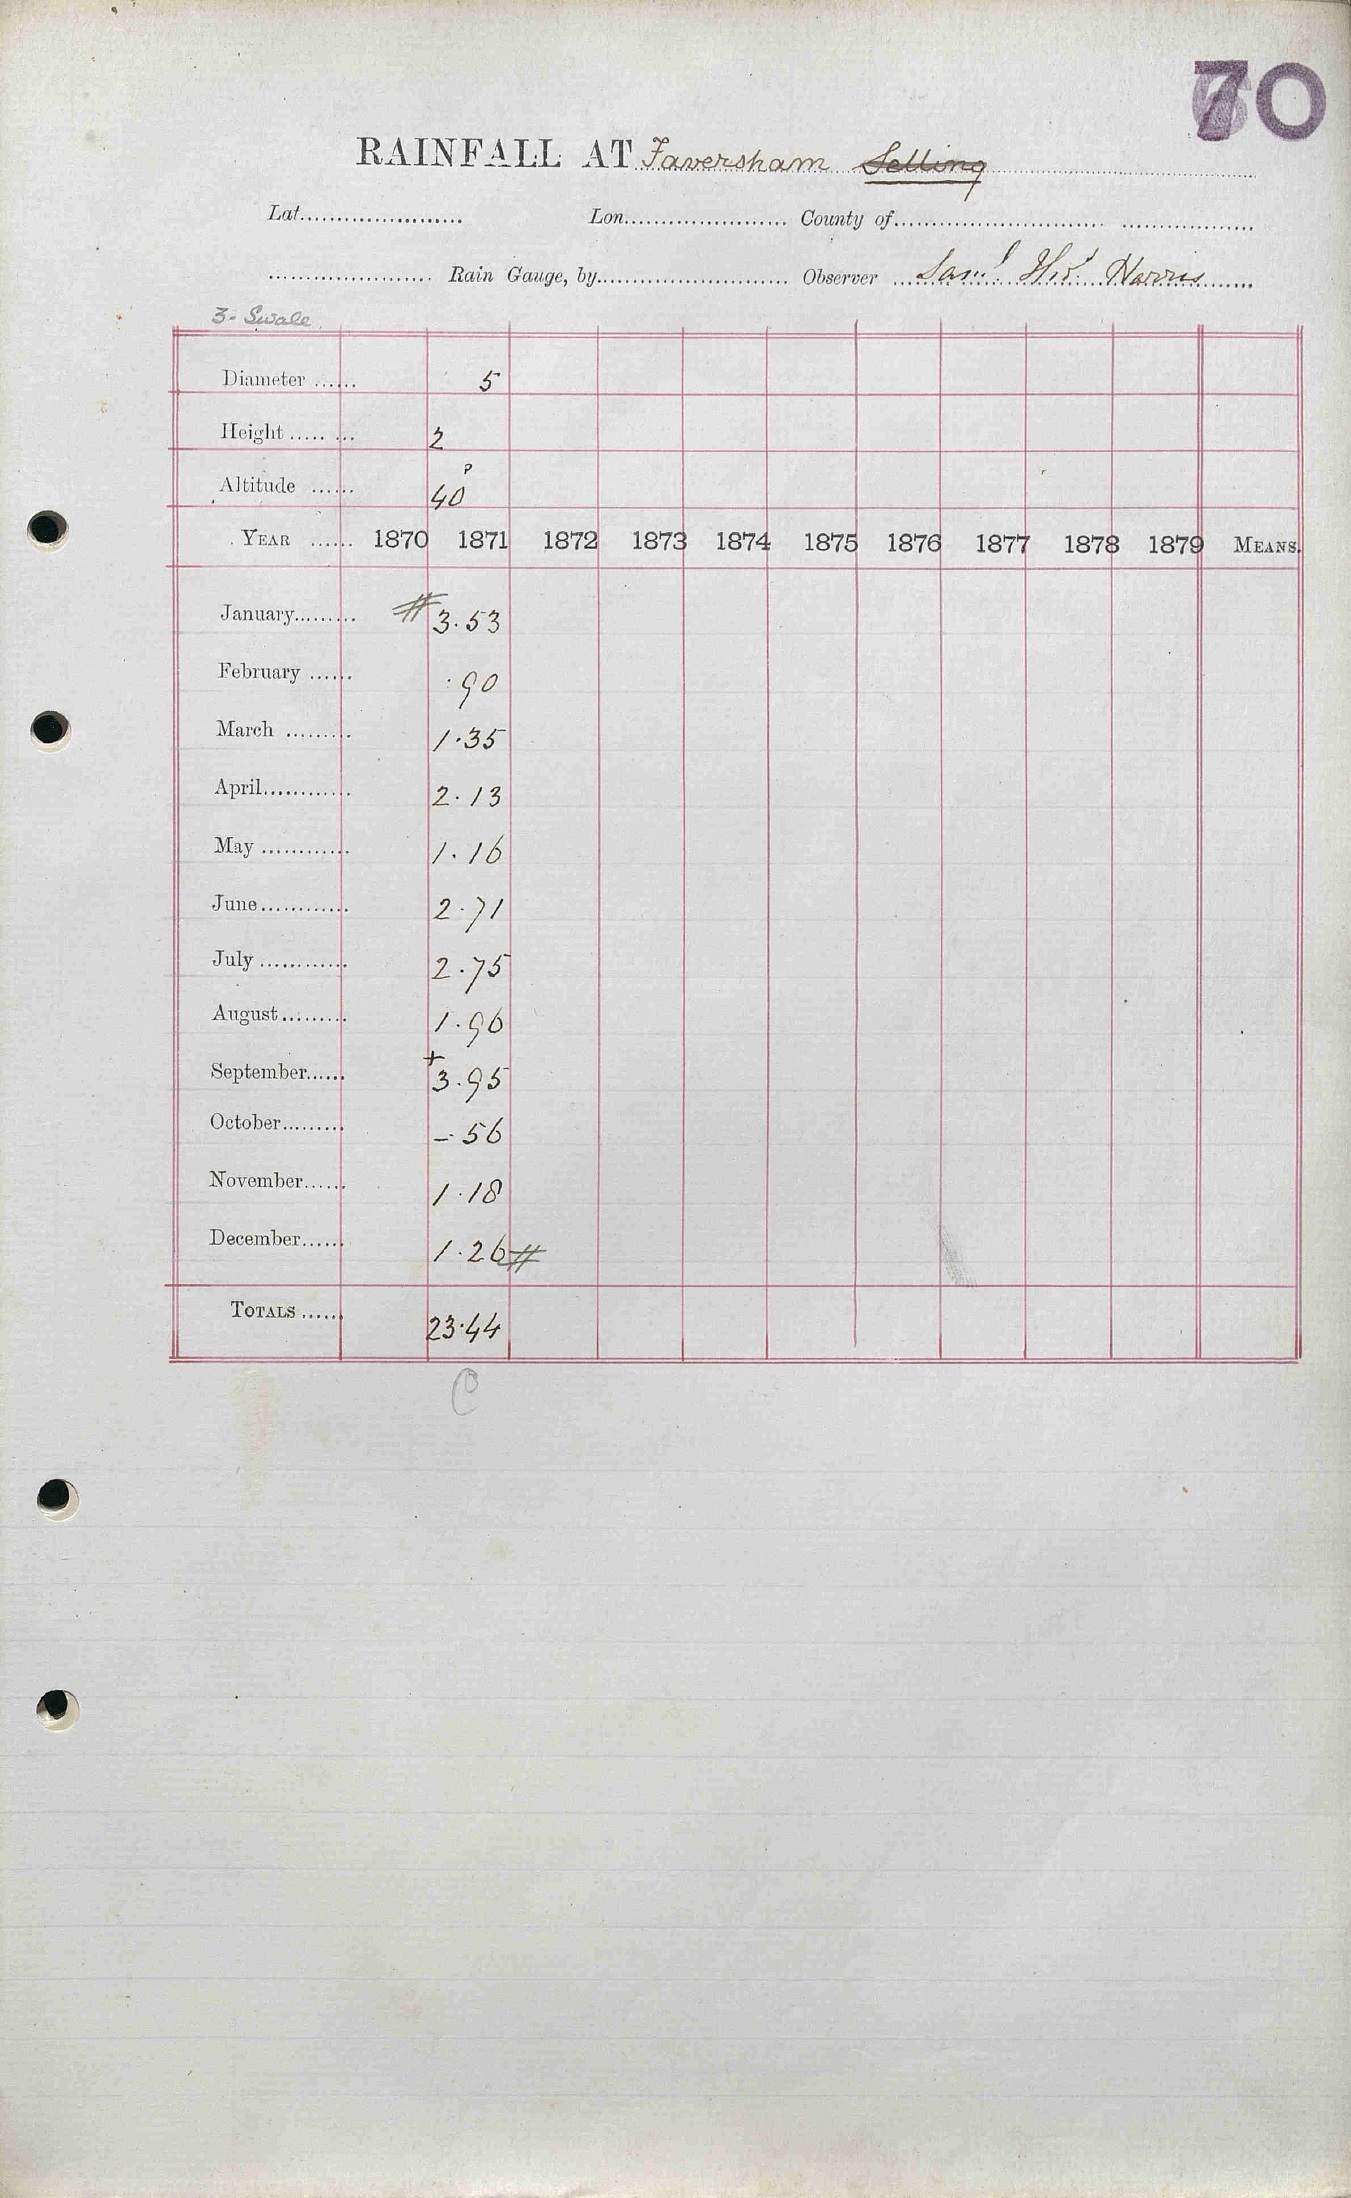 70
RAINFALL AT Faversham Selling
Lat...................... Lon...................... County of..............................................
...................... Rain Gauge, by.......................... Observer Saml. Thos. Harris
3 - Swale
Diameter ...... 5
Height ..... ... 2
Altitude ...... 40 P
YEAR ...... 1870 1871 1872 1873 1874 1875 1876 1877 1878 1879 MEANS.
January......... # 3.53
February ...... .90
March ......... 1.35
April............ 2.13
May ............ 1.16
June............ 2.71
July ............ 2.75
August......... 1.96
September...... + 3.95
October......... -.56
November...... 1.18
December...... 1.26 #
TOTALS ...... 23.44